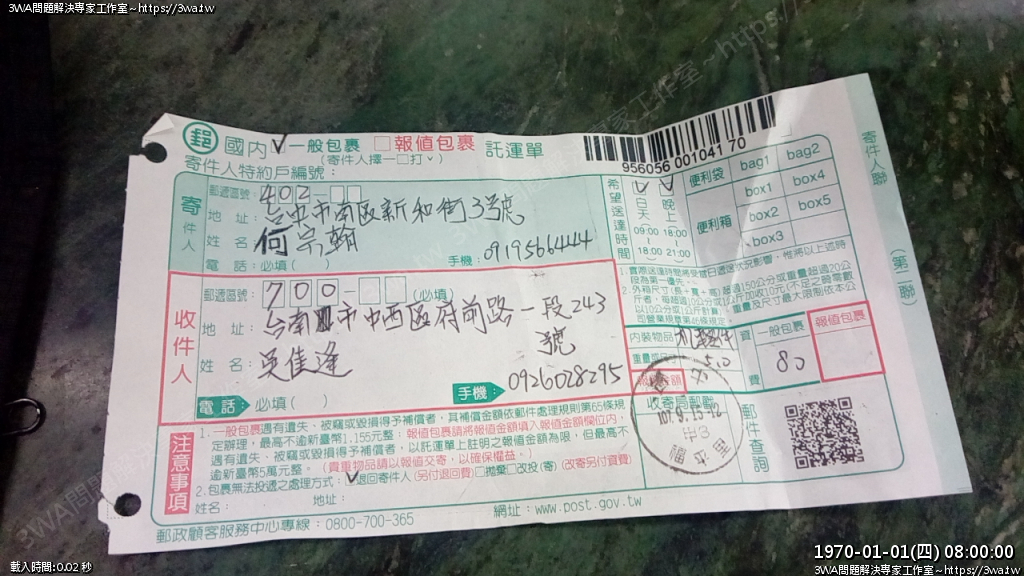 3WA問題解決專家工作室~https://3wa.tw
3WA問題解決專家工作室~https://3wa.tw
郵 國內 一般包裹 報值包裹 託運單
(寄件人擇一□打ˇ)
寄件人特約戶編號:
956056 001041 70
寄件人聯
(第二聯)
寄件人
郵遞區號: 402-
地 址: 台中市南區新和街3號
姓 名: 何宗翰
電 話: 必填( ) 手機: 0919566444
希望送達時間
白天 晚上
09:00 18:00
18:00 21:00
便利袋 bag1 bag2
便利箱 box1 box4
box2 box5
box3
收件人
郵遞區號: 700- (必填)
地 址: 台南市中西區府前路一段243
號
姓 名: 吳佳逢
電話: 必填( ) 手機: 0926028295
內裝物品
重量 5.0
資費 一般包裹 報值包裹
80
收寄局郵戳
107.9.13.12
郵件查詢
注意事項
1.一般包裹遇有遺失、被竊或毀損得予補償者,其補償金額依郵件處理規則第65條規
定辦理,最高不逾新臺幣1,155元整;報值包裹請將報值金額填入報值金額欄位內,
遇有遺失、被竊或毀損得予補償者,以託運單上註明之報值金額為限,但最高不
逾新臺幣5萬元整。(貴重物品請以報值交寄,以確保權益。)
2.包裹無法投遞之處理方式: 退回寄件人(另付退回費)□拋棄□改投(寄)(改寄另付資費)
姓名: 地址:
郵政顧客服務中心專線:0800-700-365 網址:www.post.gov.tw
載入時間:0.02 秒
1970-01-01(四) 08:00:00
3WA問題解決專家工作室~https://3wa.tw